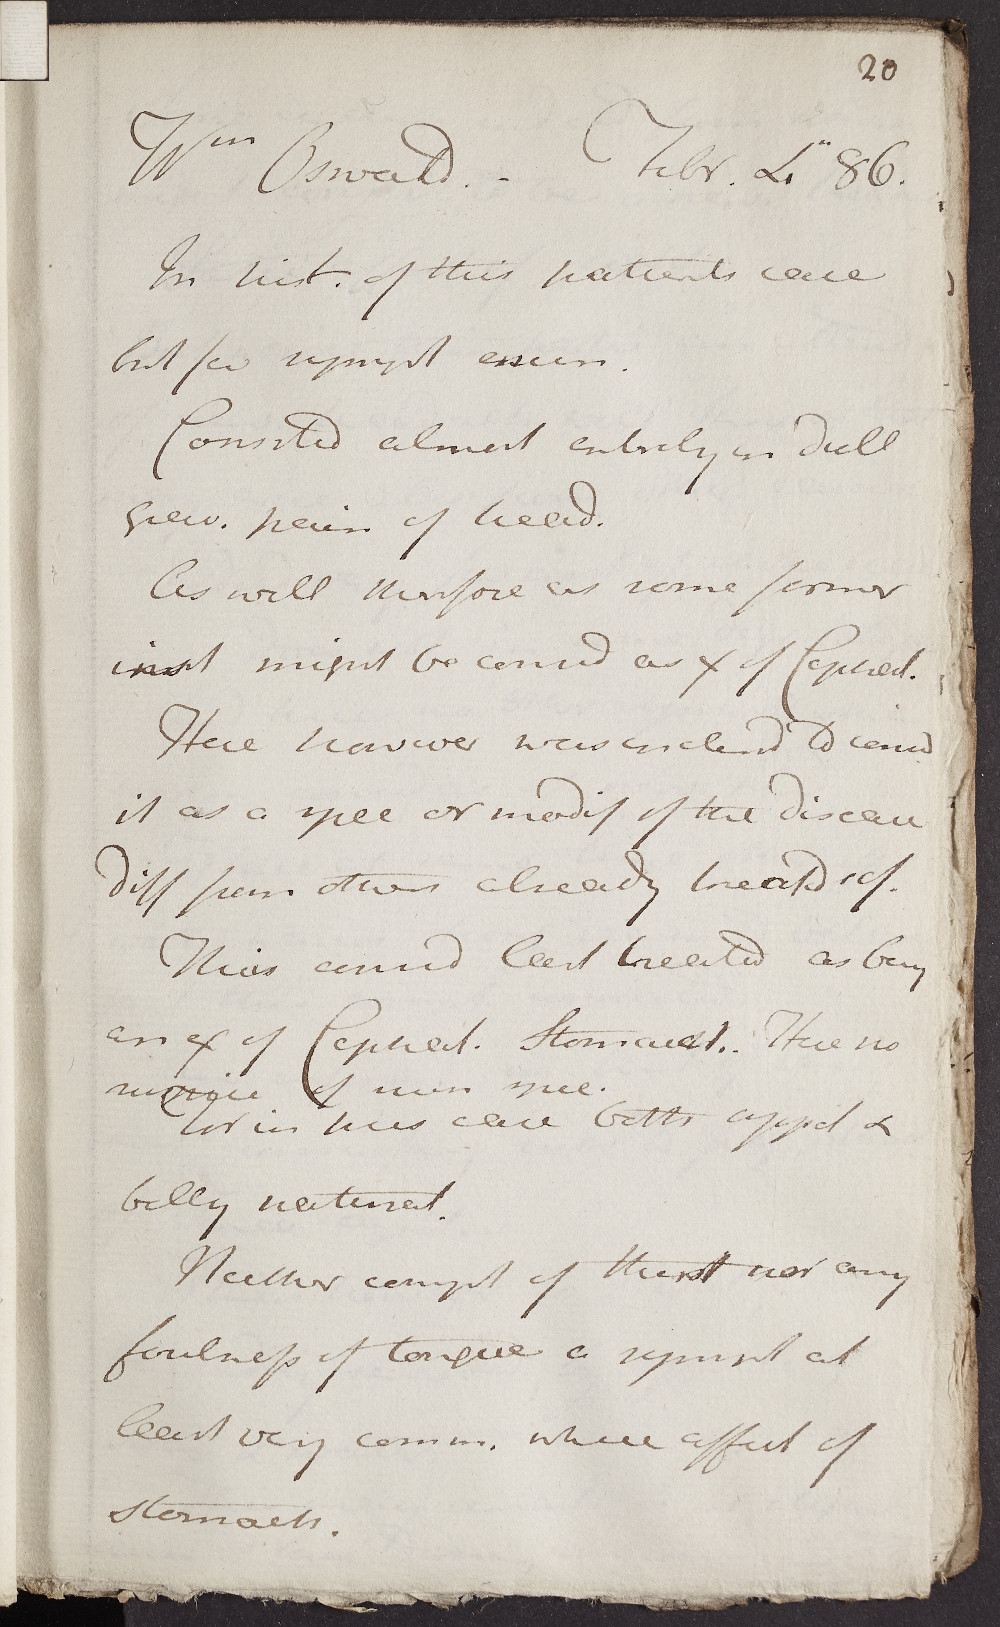 20
Wm Oswald. - Febr. 4" 86.
In hist. of this patients case
but few sympt occurr.
Consisted almost entirely in dull
grav. pain of head.
As well therefore as some former
inst might be consid as x of Cephal.
Here however was inclind to consid
it as a spee or modif of the disease
diff from others already treated of.
This consid last treated as being
an x of Cephal. Stomach. Here no
suspic of such spee.
For in this case both appet &
belly natural.
Neither compl of thirst nor any
foulness of tongue a sympt at
least very comm. where affect of
stomach.